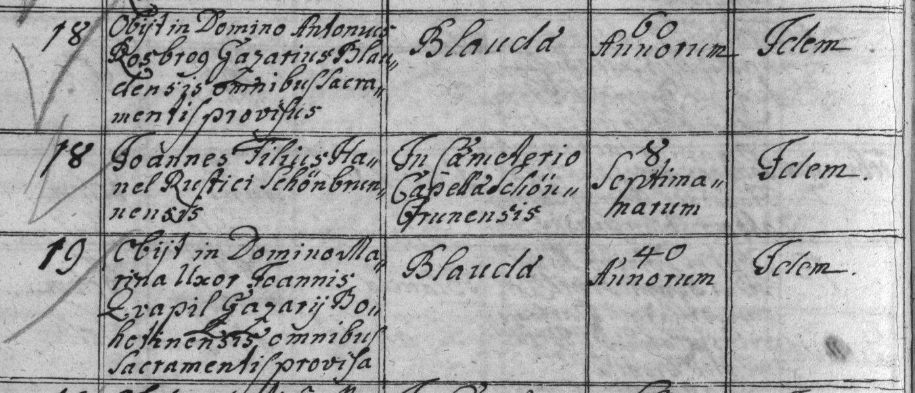 18
Obijt in Domino Antonius
Rosbrog Gazarius Blau„
densis omnibus Sacra„
mentis provisus
Blauda
60
Annorum
Idem
18
Joannes Filius Ha„
nel Rustici Schönbrun„
nensis
In Cæmeterio
Capella Schön„
brunensis
8
Septima„
narum
Idem.
19
Obijt in Domino Ma„
rina Uxor Joannis
Qvapil Gazarij Bo„
hetinensis omnibus
Sacramentis provisa
Blauda
40
Annorum
Idem.